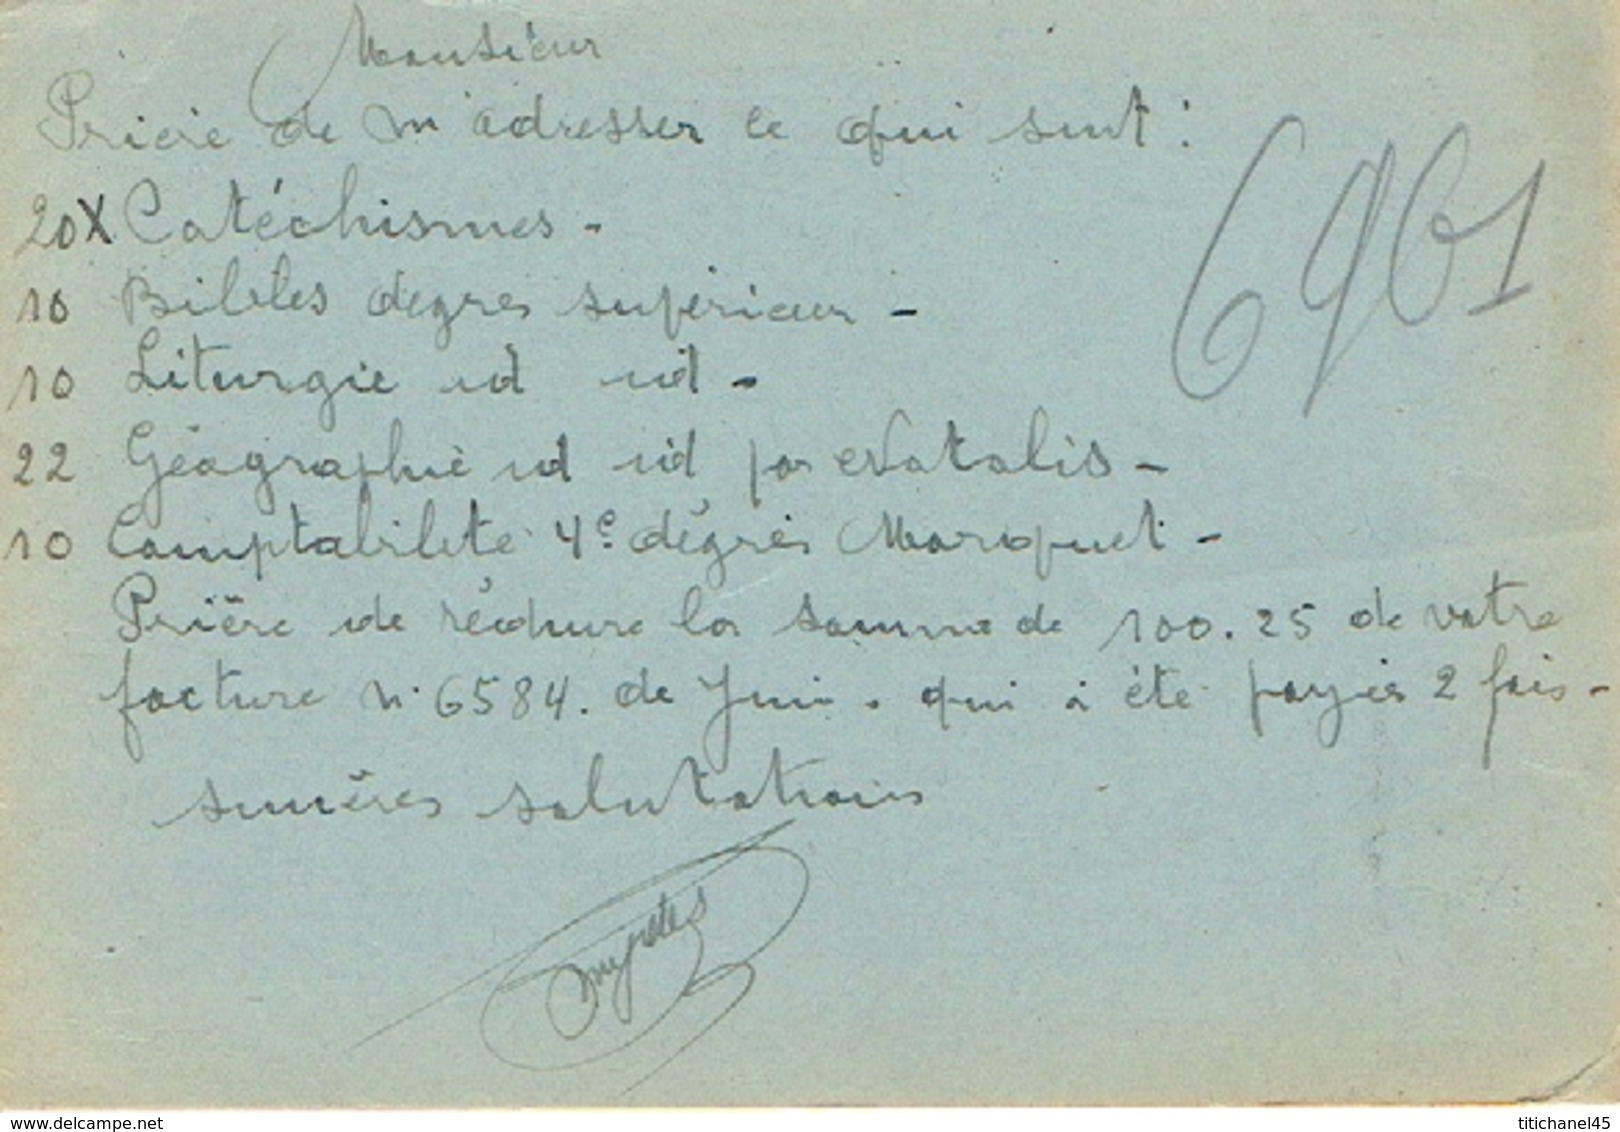 Monsieur
Prière de m'adresser ce qui suit :
6901
20X Catéchismes -
10 Bibles degrés supérieur -
10 Liturgie id id -
22 Géographie id id par Natalis -
10 Comptabilité 4e degrés Marquet -
Prière de réduire la somme de 100.25 de votre
facture n° 6584. de Juin. qui a été payés 2 fois -
sincères salutations
delcampe.net
titichanel45